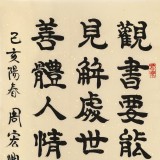 觀書要能
見解處世
善體人情
己亥陽春 周宏